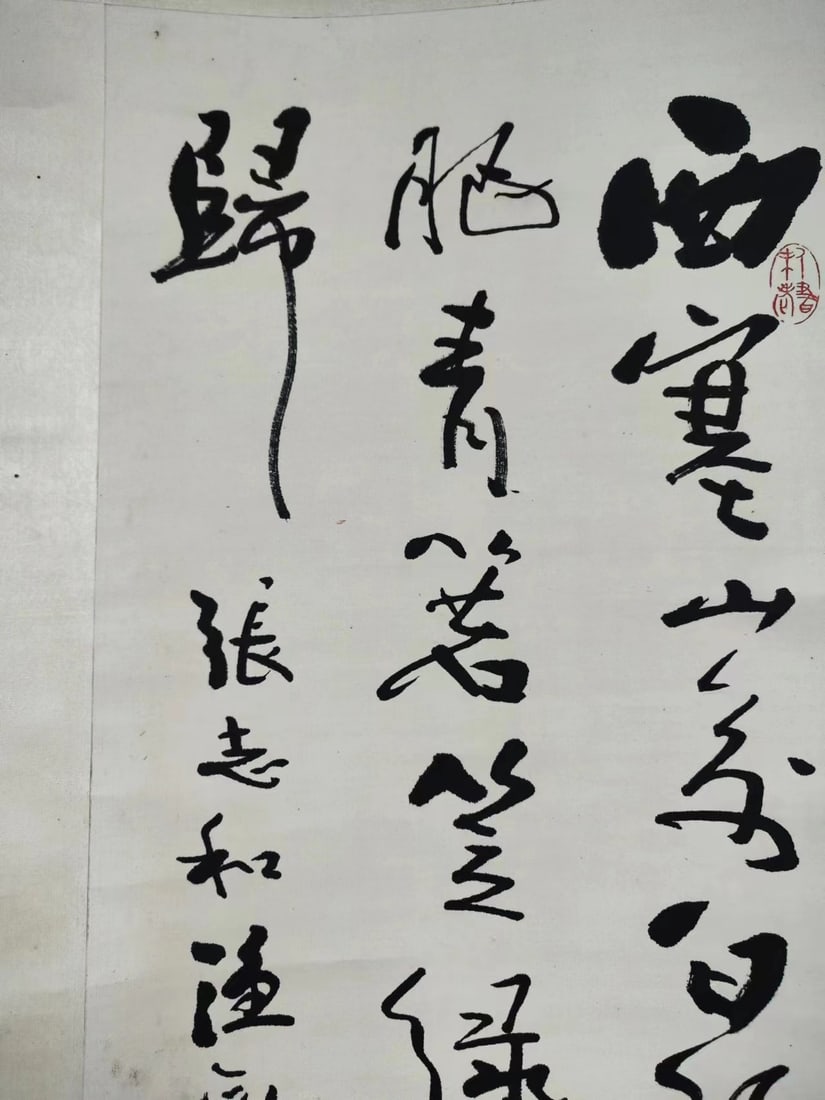 西塞山前白
肥青箬笠綠
歸 張志和漁